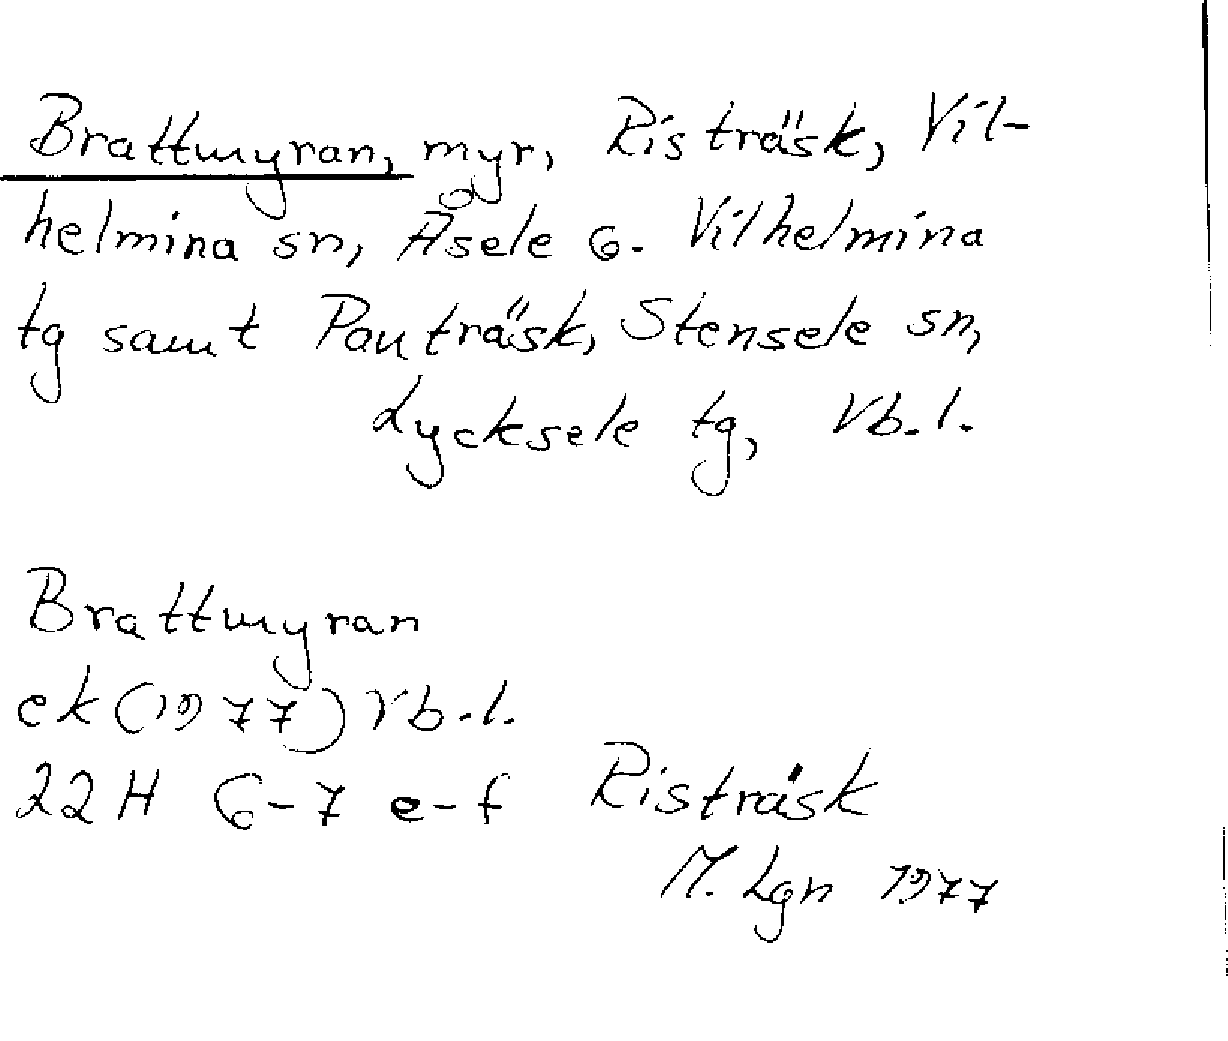 Brattmyran, myr, Risträsk, Vil-
helmina sn, Åsele G. Vilhelmina
tg samt Pauträsk, Stensele sn,
Lycksele tg, Vb.l.
Brattmyran
ek (1977) Vb.l.
22H 6-7 e-f Risträsk
M. Lgn 1977